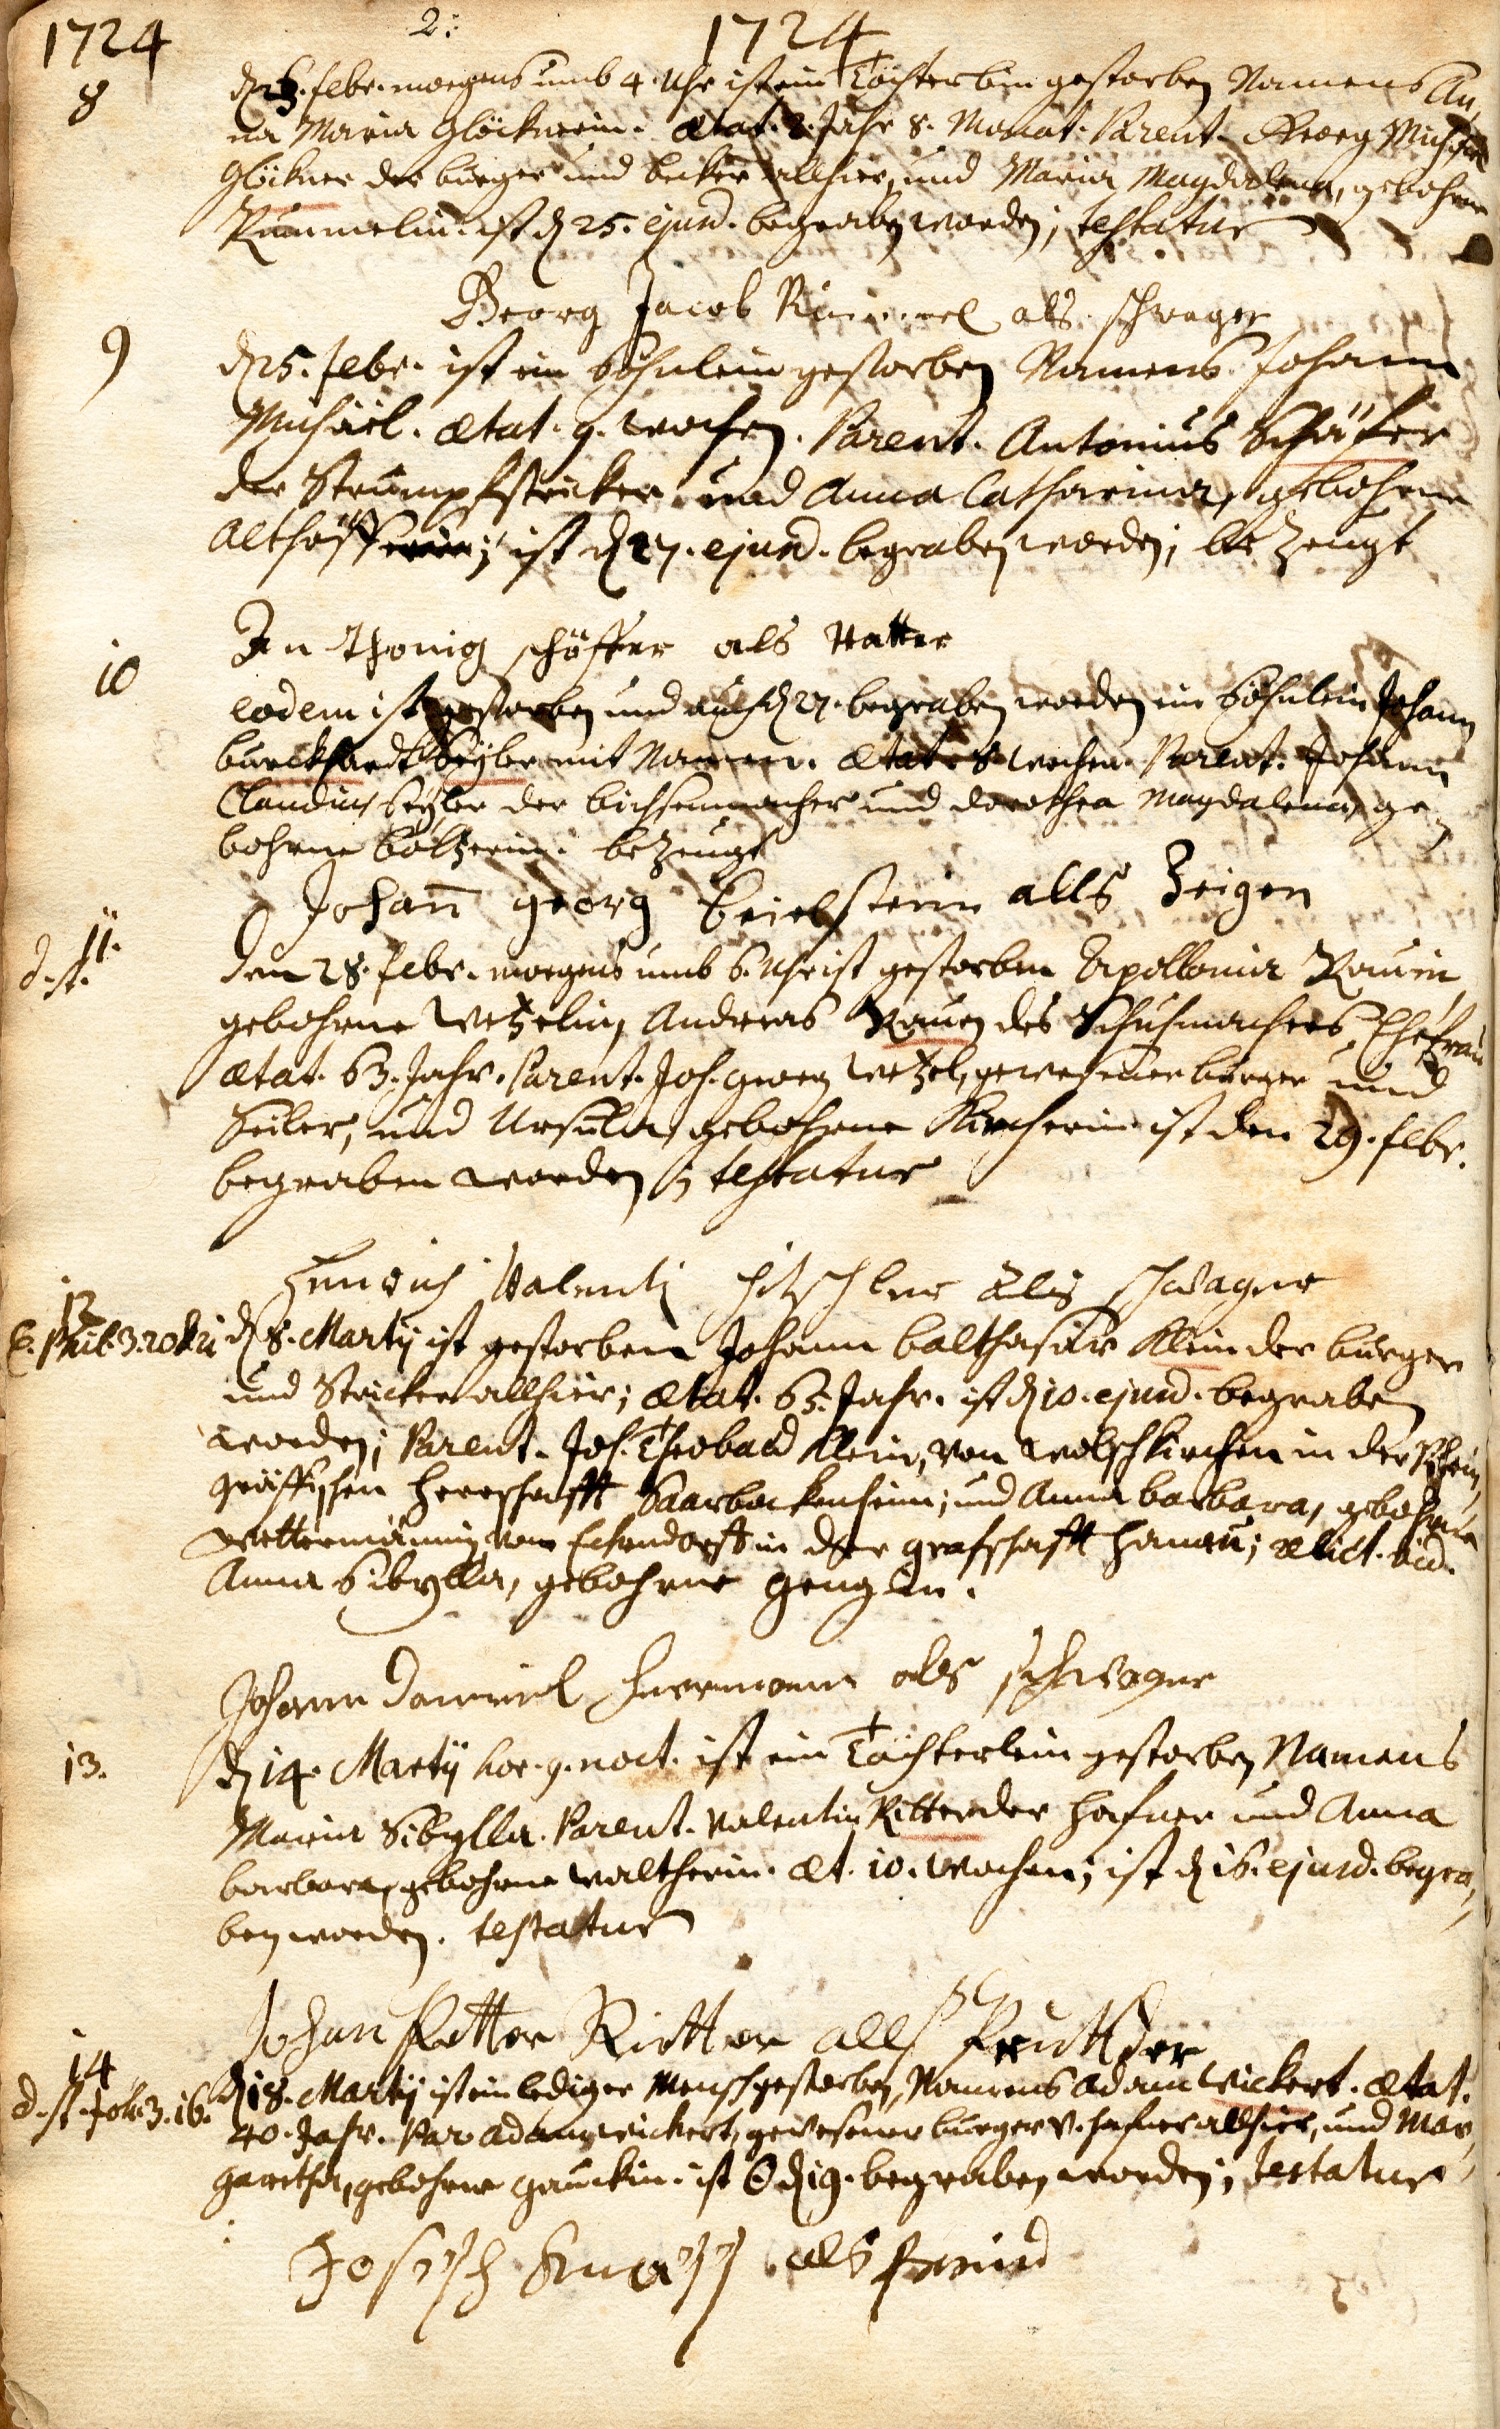 1724 2: 1724
8
febr. morgens umb 4. Uhr ist ein Töchterlein gestorben Namens An,
na Maria Glöcknerin. Ætat. 2. Jahr 8. Monat. Parent. Georg Michael
Glöckner der burger und becker allhier, und Maria Magdalena, gebohrne
Rummelin. ist d. 25. ejusd. begraben worden; testatur
Georg Jacob Rümmel als schwager
9
d. 25. Febr. ist ein Söhnlein gestorben Namens Johann
Michäel. Ætat. 9. wochen. Parent. Antonius Schäfer
der Strumpfstricker und Anna Catharina, gebohrne
ist d. 27. ejusd. begraben worden; bezeugt
An Thonig schäffer als Vatter
10
eodem ist gestorben und auch d. 27. begraben worden ein Söhnlein Johann
burckhardt Seyler mit Namen. Ætat. 8 wochen. Parent. Johann
Claudius Seyler der bichsenmacher und dorothea Magdalena, ge,
bohrne boltzerin. bezeugt
Johañ georg beielstein alls Zeigen
11.
d. st.
den 28. febr. morgens umb 6. Uhr ist gestorben Apollonia Rauin
gebohrne Wetzelin, Andreas Rauen des Schuhmachers Ehefrau
Ætat. 63. Jahr. Parent. Joh. Georg Wetzel, gewesener burger und
Seiler, und Ursula, gebohrne Kircherin ist den 29. febr.
begraben worden; testatur
Henrich Valentin hitschler als schwager
12
Phil. 3. 20
d. 8. Martij ist gestorben Johann balthasar Klein der burger
und Stricker allhier; Ætat. 63. Jahr. ist d. 10. ejusd. begraben
worden; Parent. Joh. Theobald Klein, von Wolschkirchen in der Rhein,
gräffischen Herrschafft Saarbockenheim; und Anna barbara, gebohrne
Wettermännin von Eckendorff in der grafschafft Hanau; relict. vid.
Anna Sibylla, gebohrne
Johann Daniel Herrmann als schwager
13.
d. 14. Martij hor. 9. noct. ist ein Töchterlein gestorben Namens
Maria Sibylla. Parent. Valentin Ritter der Hafner und Anna
barbara, gebohrne Waltherin. Æt. 10. Wochen; ist d. 16. ejusd. begra,
ben worden. testatur
Johan Petter Ritter alls
14
d. st. Joh. 3. 16.
d. 18. Martij ist ein lediger Mensch gestorben, Namens Adam Wickert. Ætat.
40. Jahr. Par. Adam Wickert, gewesener burger v. hafner allhier, und Mar,
garetha, gebohrne gauckin. ist d. 19. begraben worden; testatur
Joseph als freind